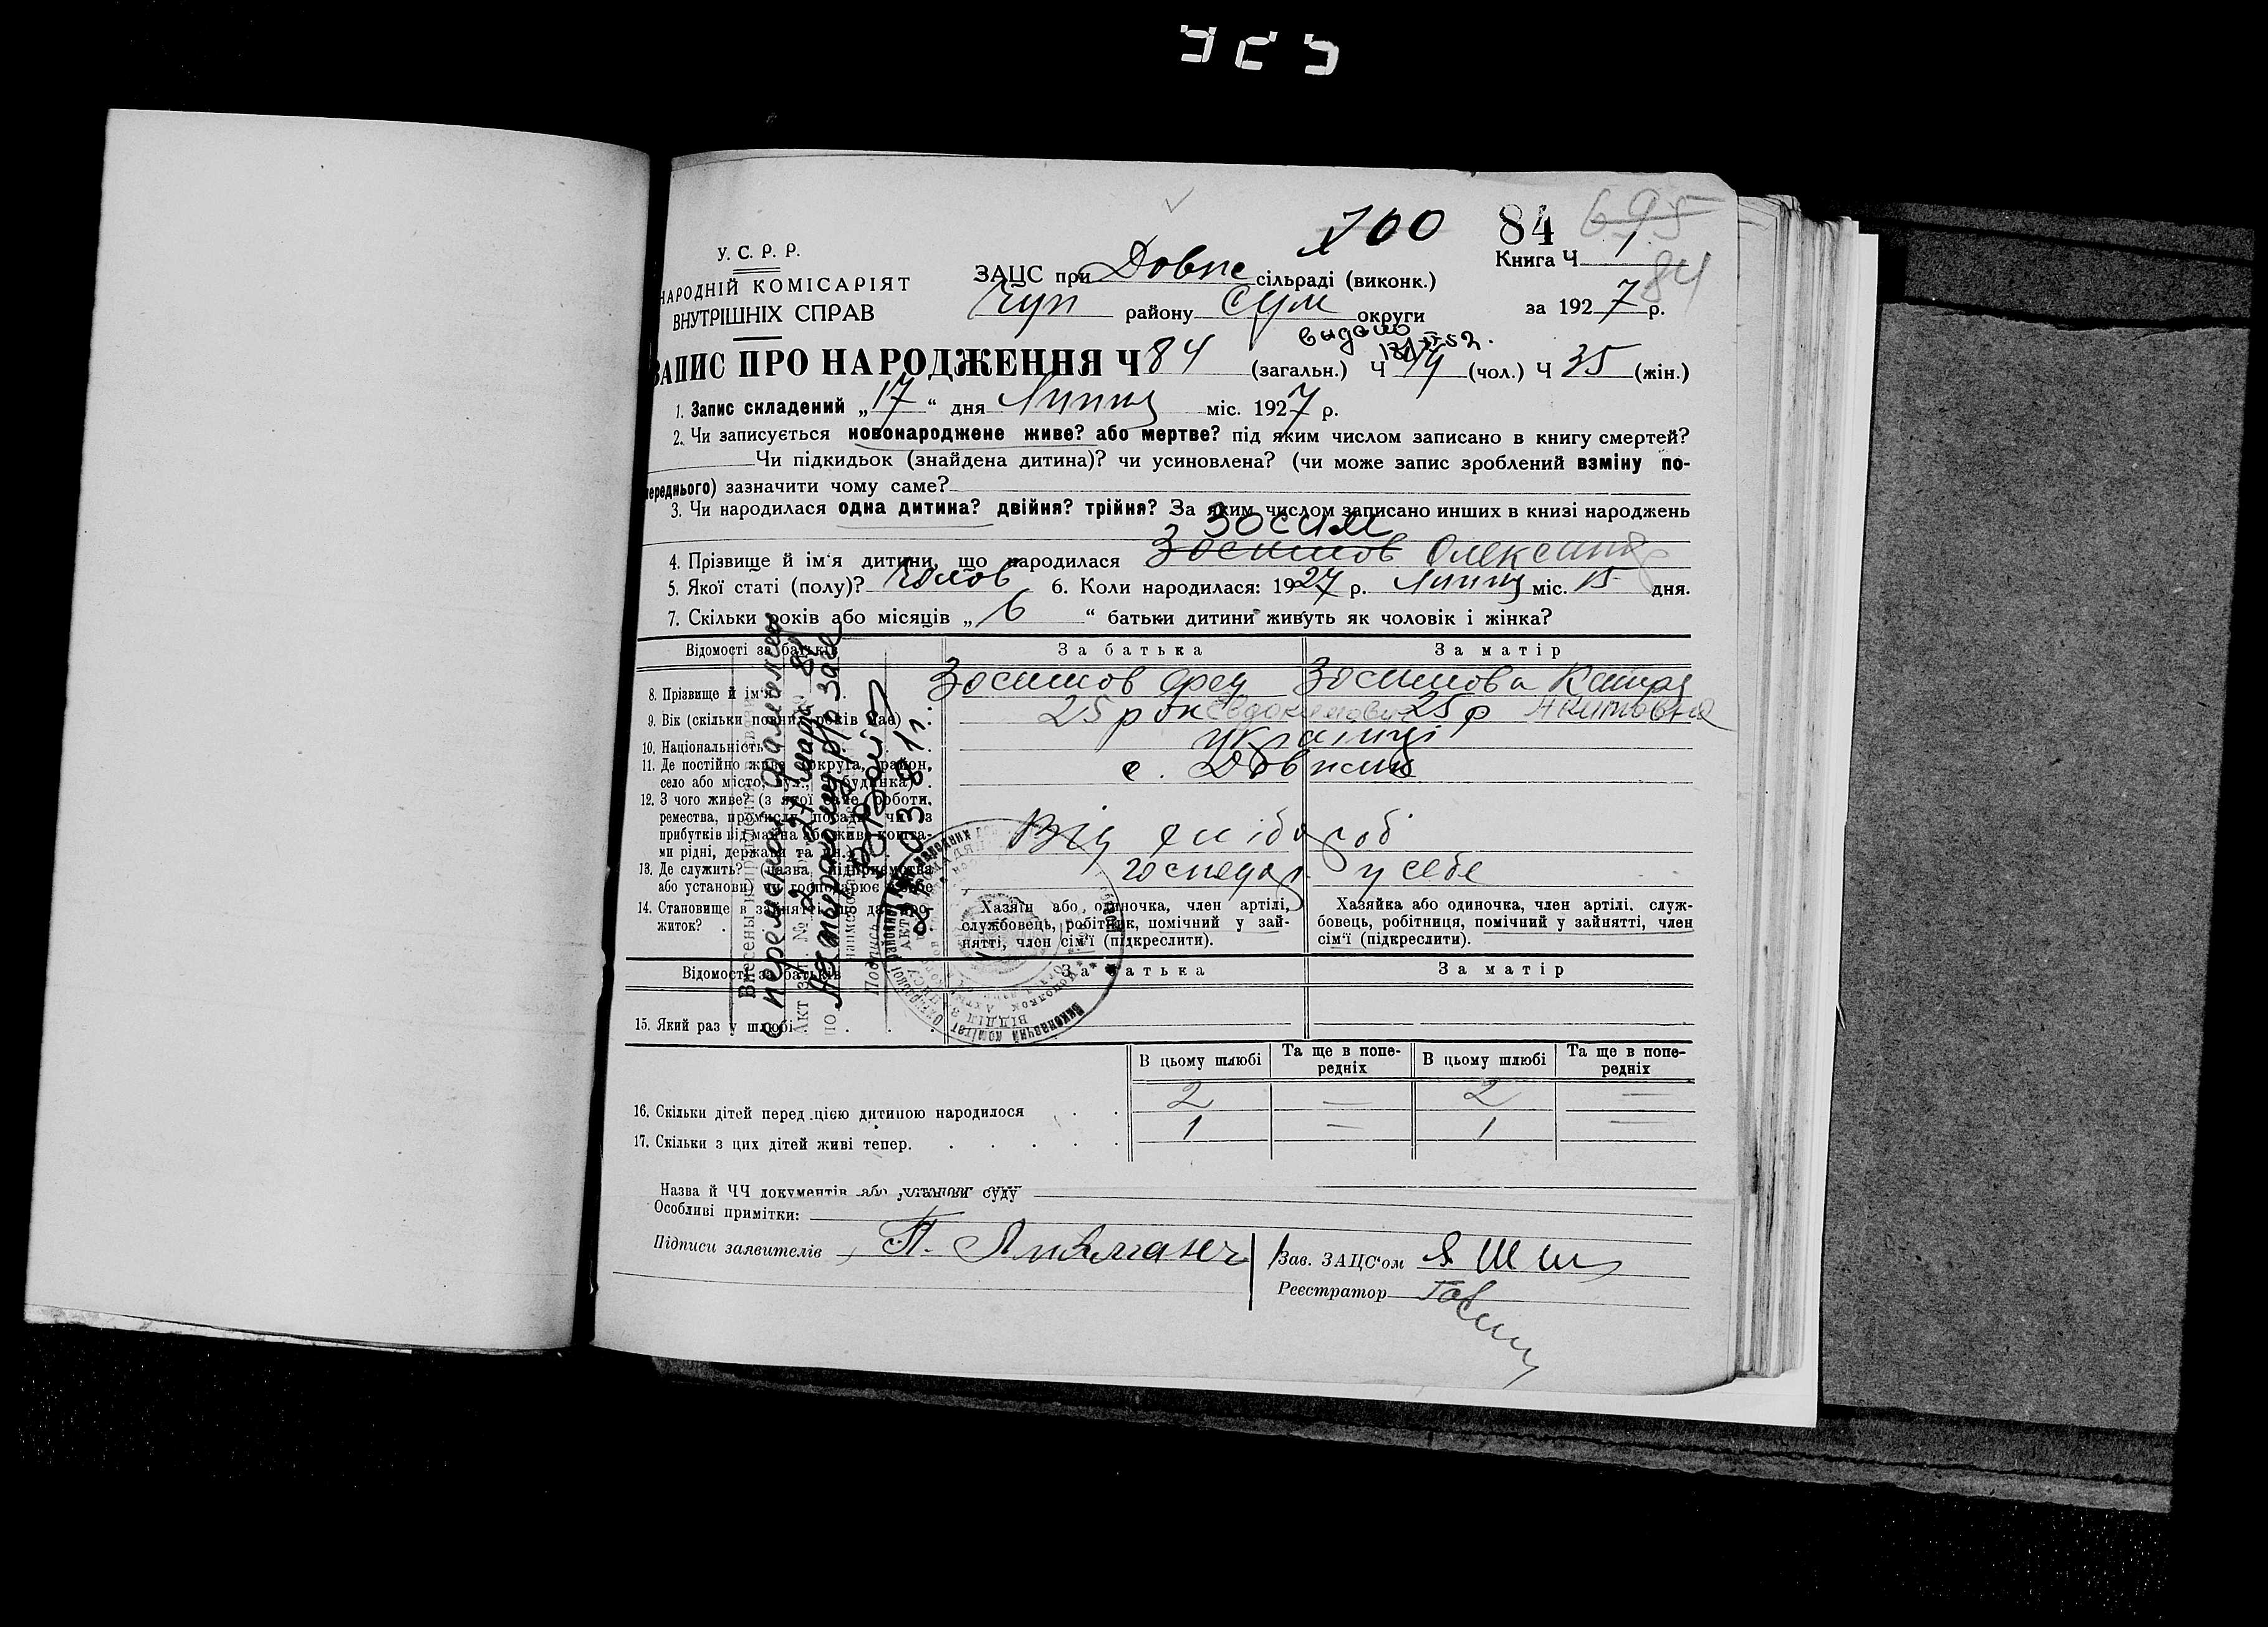 700 84 695
У. С. Р. Р.
НАРОДНІЙ КОМІСАРІЯТ
ВНУТРІШНІХ СПРАВ
ЗАЦС при Довже сільраді (виконк.)
Книга Ч 1
84
Чуп району Сум округи
за 1927 р.
видано
ЗАПИС ПРО НАРОДЖЕННЯ Ч 84 (загальн.) Ч (чол.) Ч 35 (жін.)
1. Запис складений „17“ дня Липця міс. 1927 р.
2. Чи записується новонароджене живе? або мертве? під яким числом записано в книгу смертей?
Чи підкидьок (знайдена дитина)? чи усиновлена? (чи може запис зроблений взміну по-
переднього) зазначити чому саме?
3. Чи народилася одна дитина? двійня? трійня? За яким числом записано инших в книзі народжень
Зосим
4. Прізвище й ім‘я дитини, що народилася Зосимов Олександр
5. Якої статі (полу)? Чолов 6. Коли народилася: 1927 р. Липця міс. 15 дня.
7. Скільки років або місяців „6“ батьки дитини живуть як чоловік і жінка?
Відомості за батьків За батька За матір
8. Прізвище й ім‘я Зосимов Фед Зосимова Катря
9. Вік (скільки повних років має) 25 рок Євдокимович 25 р Якитовна
10. Національність українці
11. Де постійно живе (округа, район,
село або місто, вул., будинка) с. Довжик
12. З чого живе? (з якої саме роботи,
ремества, промислу, посади, чи з
прибутків від майна або живе кошта-
ми рідні, держави та ин.) Від
13. Де служить? (назва підприємства
або установи) чи господарює в себе господар. у себе
14. Становище в зайнятті, що дає про-
житок?
Хазяїн або одиночка, член артілі,
службовець, робітник, помічний у зай-
нятті, член сім‘ї (підкреслити).
Хазяйка або одиночка, член артілі, служ-
бовець, робітниця, помічний у зайнятті, член
сім‘ї (підкреслити).
Відомості за батьків За батька За матір
15. Який раз у шлюбі
В цьому шлюбі Та ще в попе-
редніх В цьому шлюбі Та ще в попе-
редніх
16. Скільки дітей перед цією дитиною народилося 2 — 2 —
17. Скільки з цих дітей живі тепер. 1 — 1 —
Назва й ЧЧ документів або установи суду
Особливі примітки:
Підписи заявителів П.
Зав. ЗАЦС‘ом
Реєстратор
Внесены исправления в
с переменой фамилии
Акт № 2 от 27 марта 81
по Ахтырскому р/о загс
Подпись
27.03.81г.